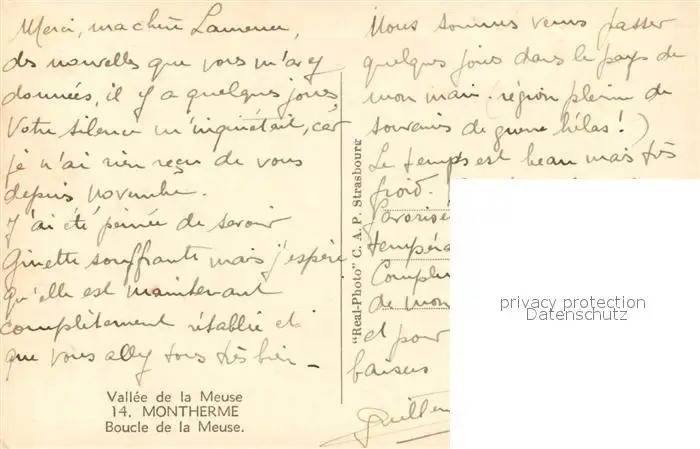 Merci, ma chère
des nouvelles que vous m'avez
données, il y a quelques jours
Votre silence m'inquiétait, car
je n'ai rien reçu de vous
depuis novembre.
J'ai été peinée de savoir
Ginette souffrante mais j'espère
qu'elle est maintenant
complètement rétablie et
que vous allez tous très bien _
Vallée de la Meuse
14. MONTHERME
Boucle de la Meuse.
"Real-Photo" C. A. P. Strasbourg
Nous sommes venus passer
quelques jours dans le pays de
mon mari (région pleine de
souvenirs de guerre hélas!)
Le temps est beau mais très
froid.
favorisé
tempéra
Complim
de mon
et pour
baisers
Guillem
privacy protection
Datenschutz